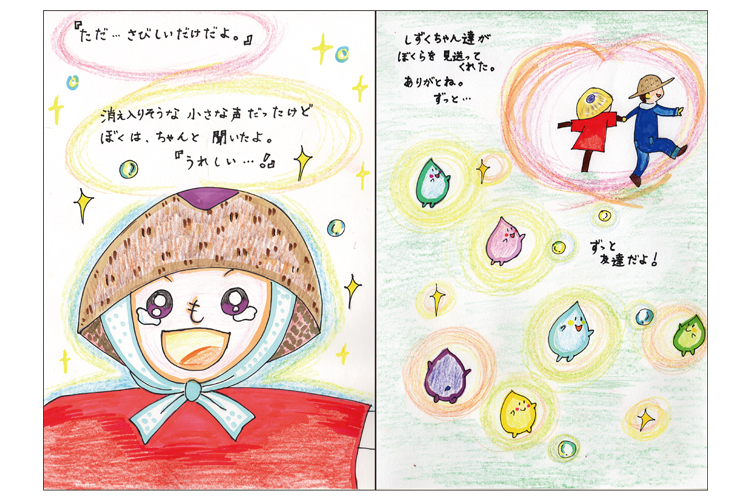 『ただ… さびしいだけだよ。』
消え入りそうな 小さな声だったけど
ぼくは、ちゃんと 聞いたよ。
『うれしい…！』
も
しずくちゃん達が
ぼくらを 見送って
くれた。
ありがとね。
ずっと…
ずっと
友達だよ！